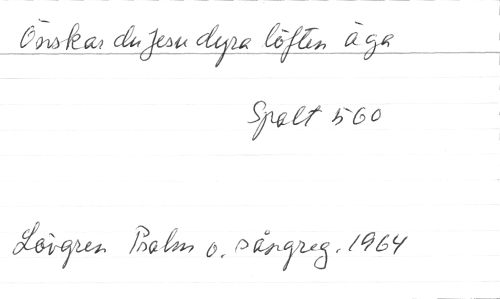 Önskar du Jesu dyra löften äga
Spalt 560
Lövgren Psalm o. sångreg. 1964